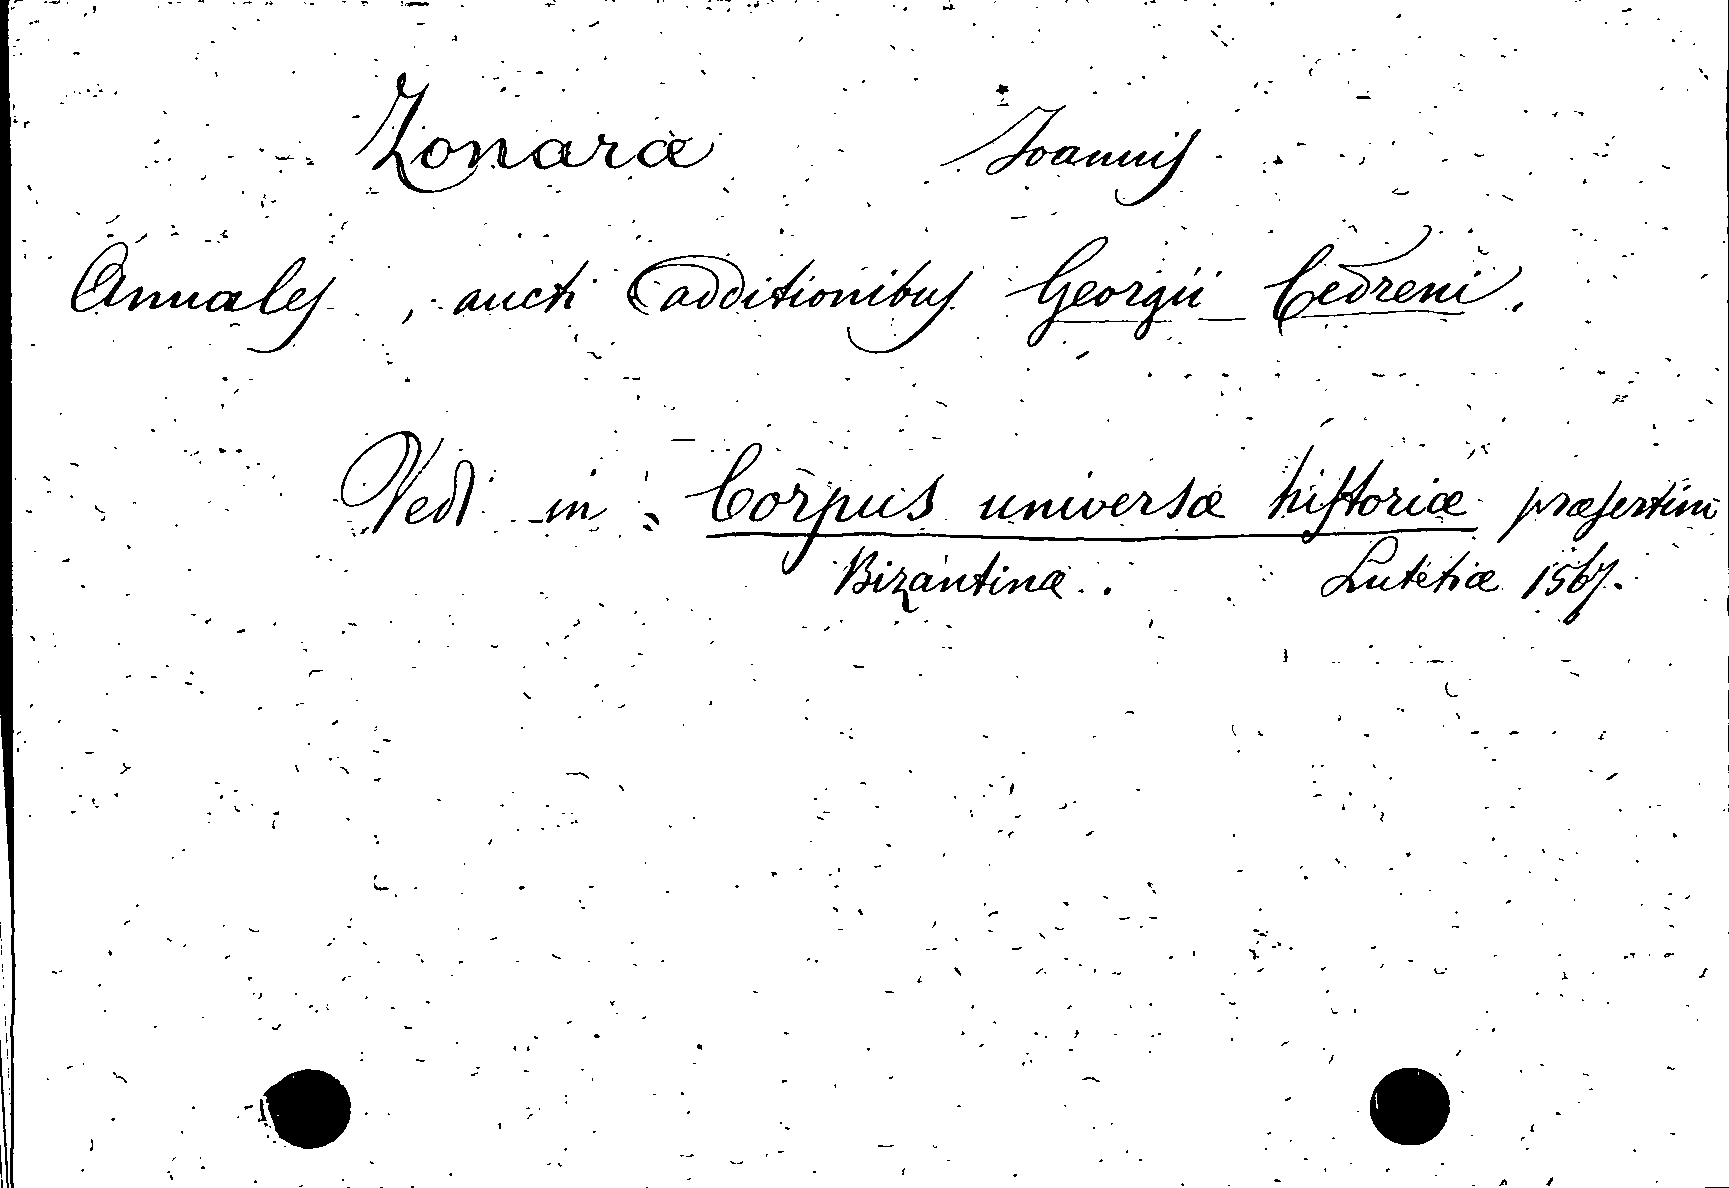 Zonaræ Joannis
Annales, aucti additionibus Georgii Cedreni.
Vedi in: Corpus universæ historiæ præsertim
Bizantinæ. Lutetiæ 1567.